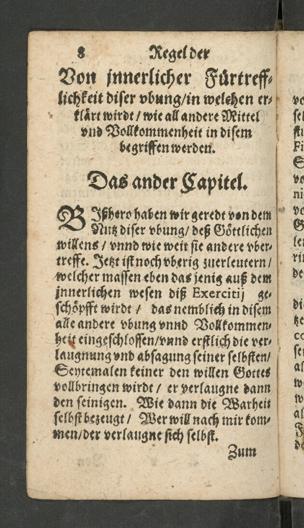 8 Regel der
Von jnnerlicher Fürtreff-
lichkeit diser vbung/in welchen er-
klärt wirdt / wie all andere Mittel
vnd Vollkommenheit in disem
begriffen werden.
Das ander Capitel.
BIßhero haben wir geredt von dem
Nutz diser vbung/ deß Göttlichen
willens / vnnd wie weit sie andere vber-
treffe. Jetzt ist noch vberig zuerleutern /
welcher massen eben das jenig auß dem
jnnerlichen wesen diß Exercitij ge-
schöpfft wirdt / das nemblich in disem
alle andere vbung vnnd Vollkommen-
heit eingeschlossen/vnnd erstlich die ver-
laugnung vnd absagung seiner selbsten/
Seytemalen keiner den willen Gottes
vollbringen wirdt / er verlaugne dann
den seinigen. Wie dann die Warheit
selbst bezeugt / Wer will nach mir kom-
men/der verlaugne sich selbst.
Zum